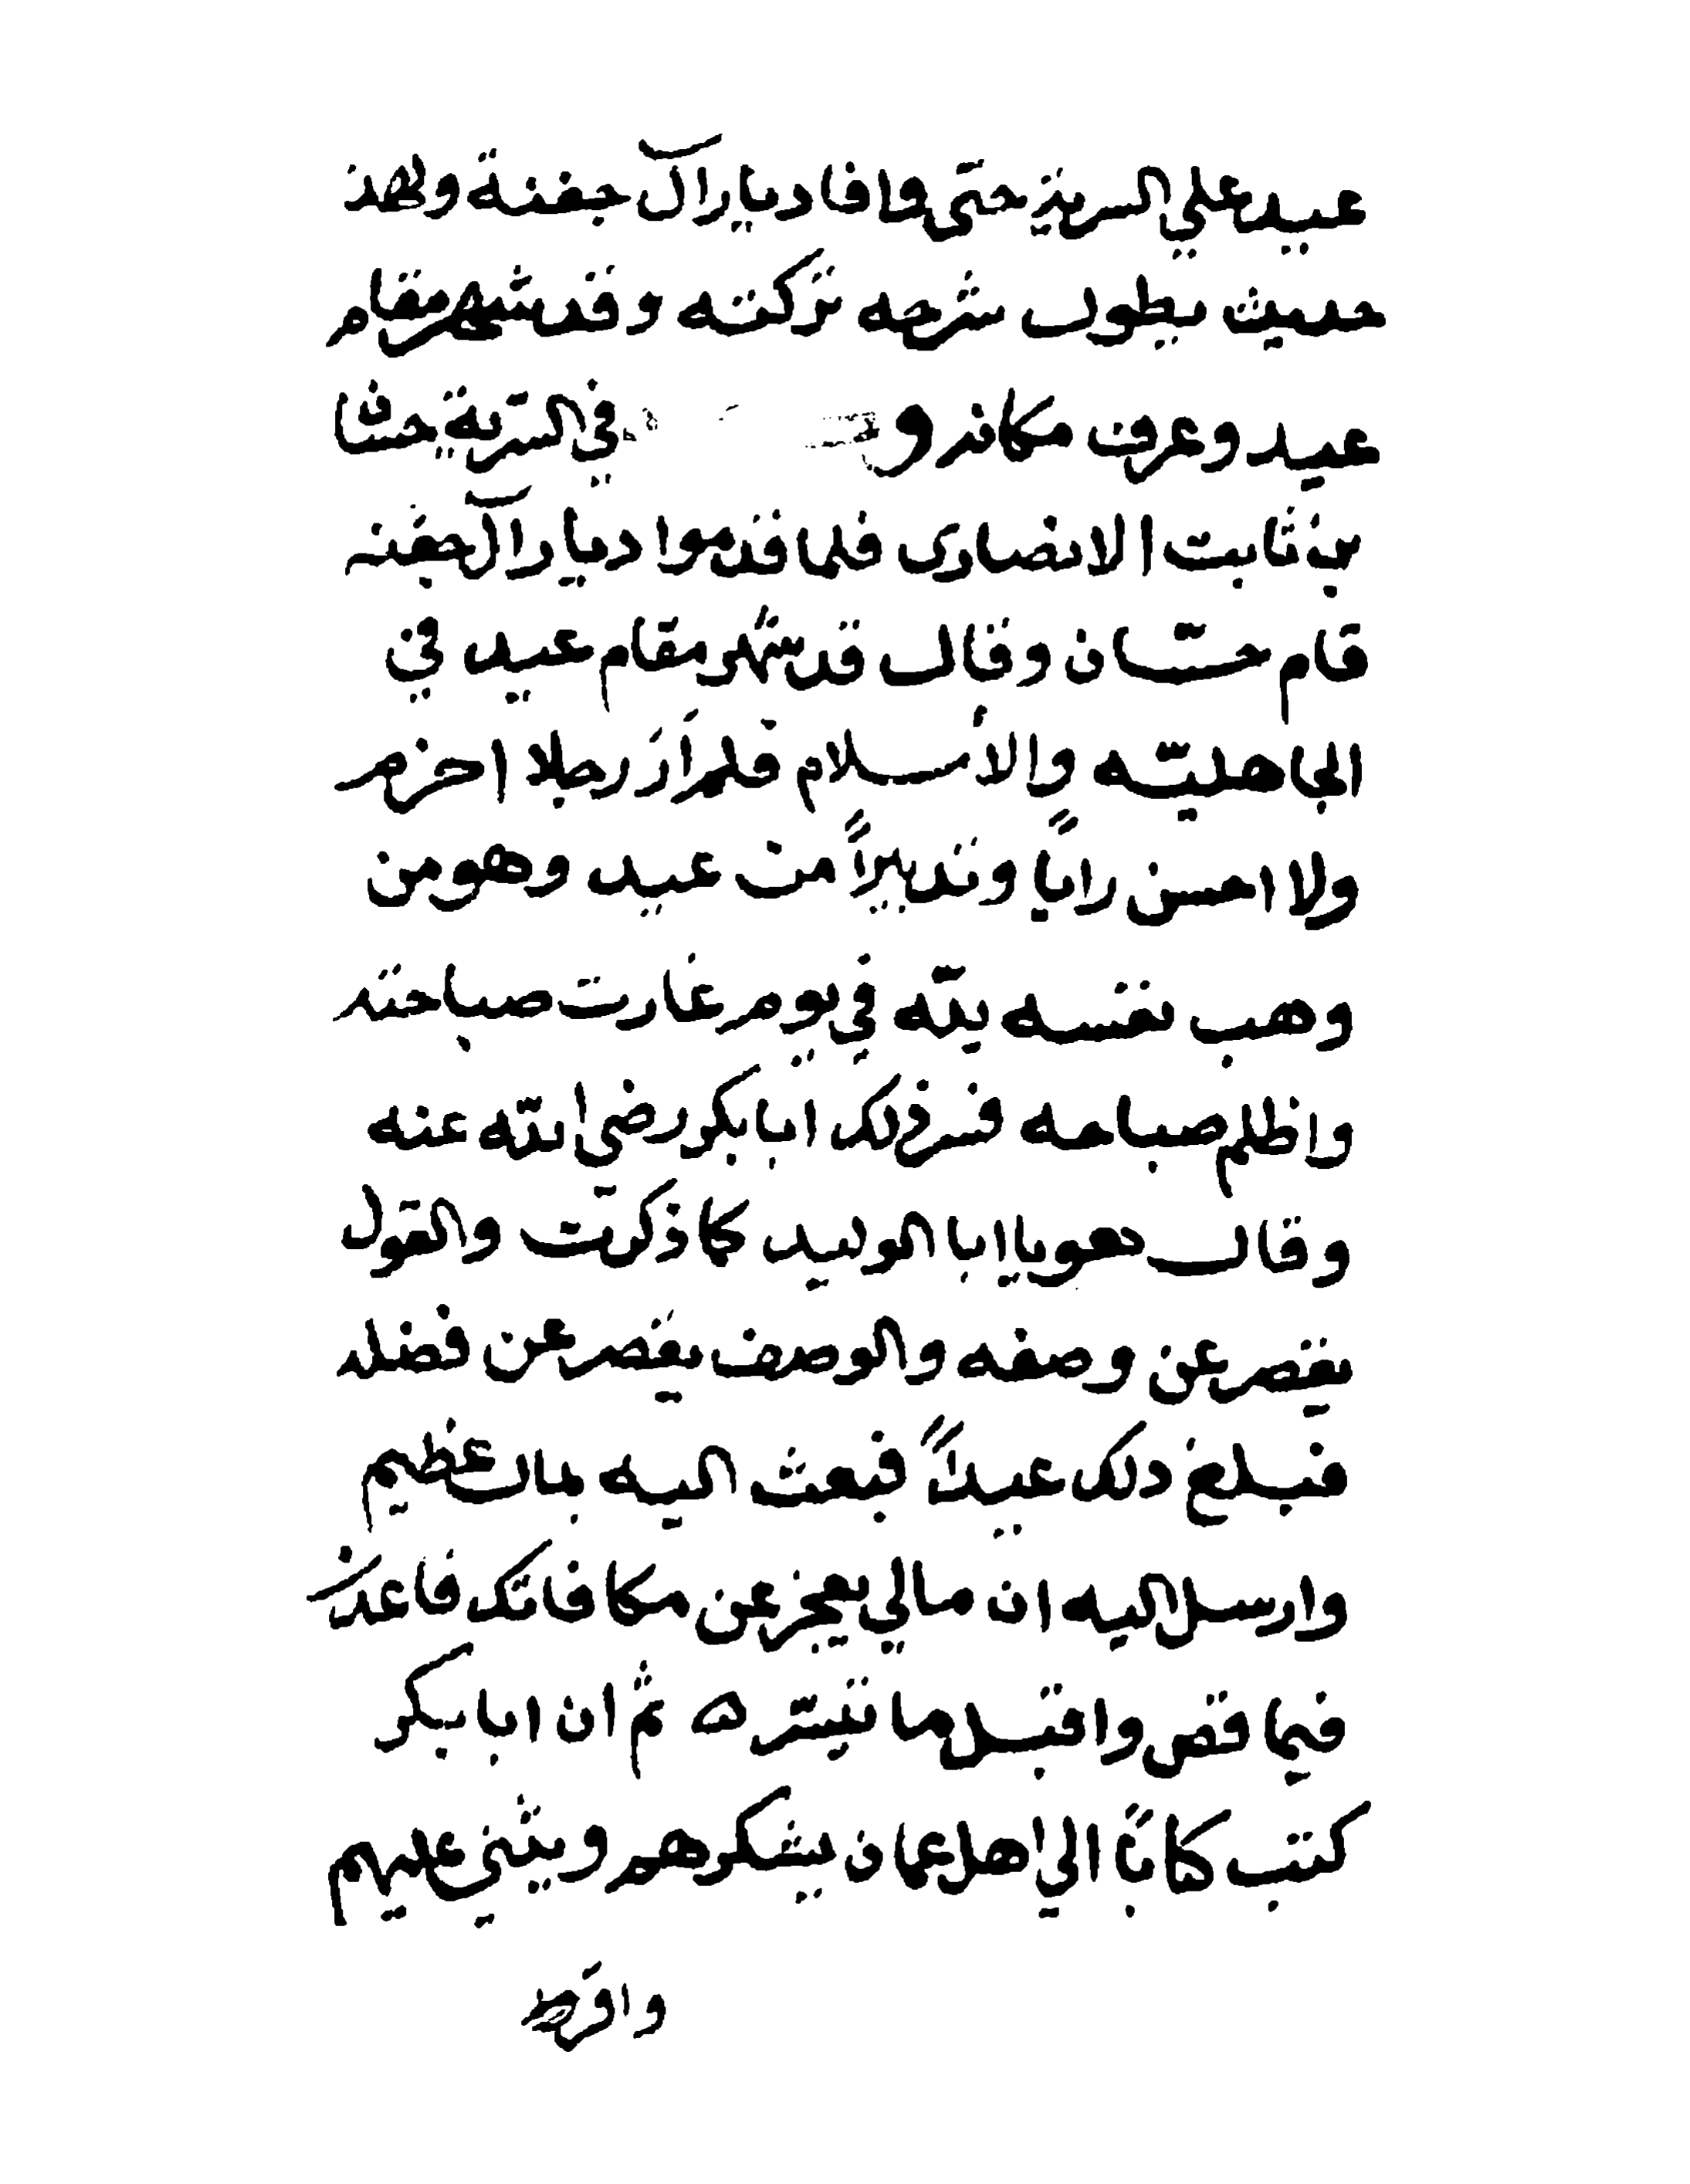 عبيد علي السرية حتى وافا ديار آل جفنة ولهذ
حديث يطول شرحه تركته وقد شهر مقام
عبيد وعرف مكانه و في السرية حسا
بن ثابت الانصارى فلما قدموا ديار آل جفنه
قام حسّان وقال قد شهر مقام عبيد في
الجاهليّه والاسلام فلم أرَ رجلا احزم
ولا احسن راياً وتدبيراً من عبيد وهو من
وهب نفسه لله في يوم غارت صباحته
واظلم صباحه فسر ذلك ابا بكر رضي الله عنه
وقال هو يا ابا الوليد كما ذكرت والقول
يقصر عن وصفه والوصف يقصر عن فضله
فبلغ ذلك عبيداً فبعث اليه بمال عظيم
وارسل اليه ان مالي يعجز عن مكافاتك فاعذر
فيما نقص واقبل ما تيسّر ه ثم ان ابا بكر
كتب كتاباً الي اهل عمان يشكرهم ويثني عليهم